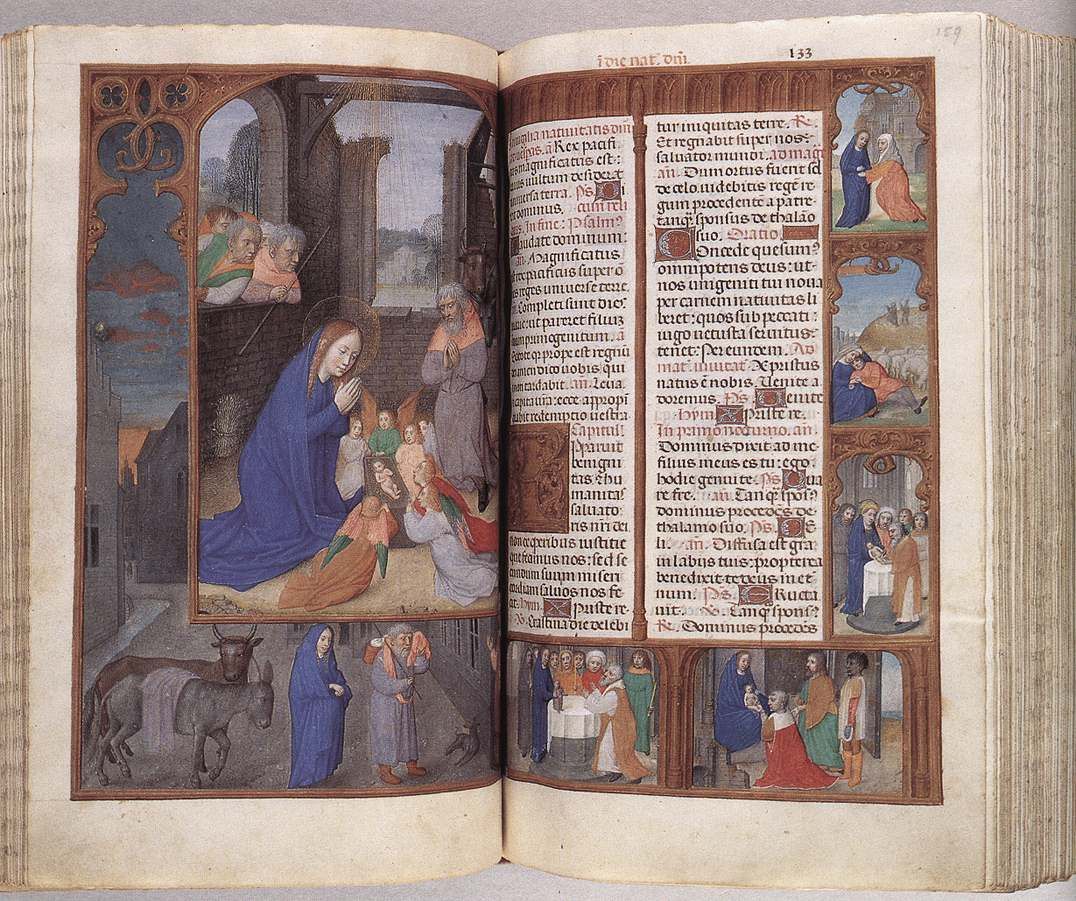 ī die nat. dñi.
133
159
natiuitatis dñi
Rex pacifi
magnificatus est:
uultum desiderat
uniuersa terra. Ps. Di
dominus,
In fine: Psalm9
audate dominum:
an. Magnificatus
rex pacificus super o
es reges uniuerse terre.
Completi sunt dies
ut pareret filium
primogenitum. a
qr prope est regnū
amen dico uobis qui
non tardabit. an. Leua
capita ūra: ecce appropī
redemptio uestra
Capitulū
Apparuit
benigni
tas & hu
manitas
saluato
ris nr̄i dei
non ex operibus iustitie
que fecimus nos: sed se
cundum suam miseri
cordiam saluos nos fe
cit. hym. Xpriste re
Crastina die delebi
tur iniquitas terre. Re.
Et regnabit super nos:
saluator mundi. ad mag̃
an. Dum ortus fuerit sol
de celo: uidebitis regē re
gum procedente a patre
tanq̃ sponsus de thalāo
suo. Oratio
Concede quesum9
omnipotens deus: ut
nos unigeniti tui noua
per carnem natiuitas li
beret: quos sub peccati
iugo uetusta seruitus
tenet: Per eundem. Ad
mat. inuitat. Xpristus
natus ē nobis. Uenite a
doremus. Ps. Uenite
hym. Xpriste re.
In primo nocturno. an.
Dominus dixit ad me
filius meus es tu: ego
hodie genui te. Ps. Qua
re fre. an. Tanq̃ spons9
dominus procedēs de
thalamo suo. Ps. Ce
li. an. Diffusa est gra
in labijs tuis: propterea
benedixit te deus in et
num: Ps. Eructa
uit. Tanq̃ spons9
Re. Dominus procedēs